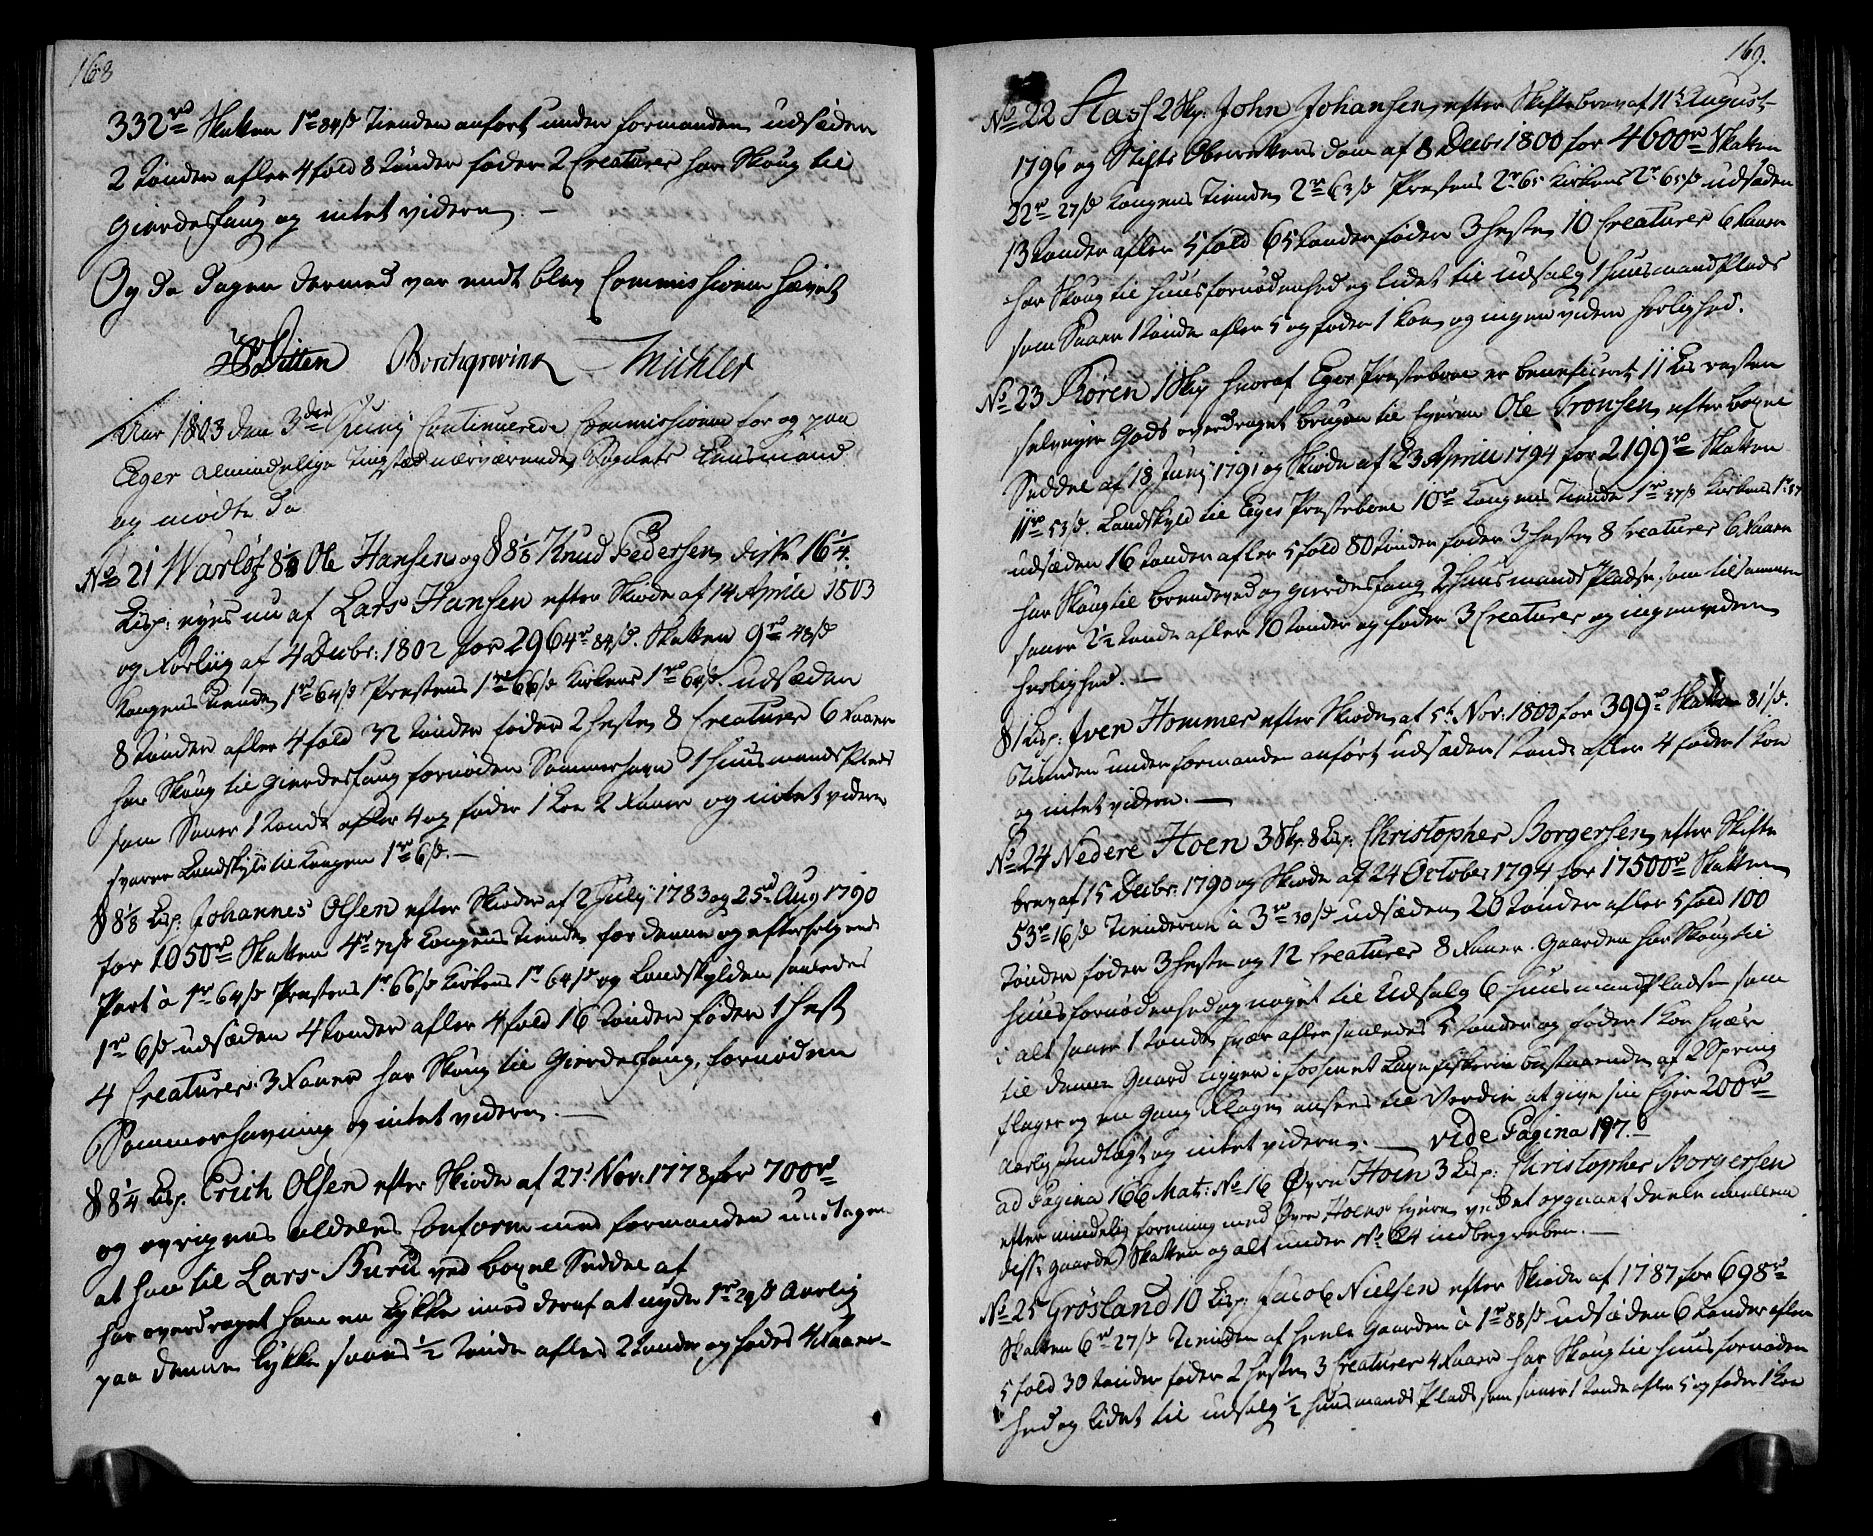 168
332rd Skatten 1rd 84s Tienden anfort under formanden udsæden
2 tønder afler 4 fold 8 tønder føder 2 Creaturer har Skoug til
gierdesfang og intet videre. —
Og da dagen dermed var endt blev Commissionen hævet
Ditten Borchgrevink Michler
Aar 1803 den 3die Junij Continuerede Commissionen for og paa
Eger almindelige tingstæd nærværende Sognets Lænsmand
og mødte da
No 21 Warløs 8⅛ Ole Hansen og § 8⅛ Knud Pedersen, disse 16¼
Lisp: eyes nu af Lars Hansen efter Skiøde af 14 Aprile 1803
og Forliig af 4 Decbr: 1802 for 2964rd 84s. Skatten 9rd 48s
kongens tiende 1rd 64s Præstens 1rd 66s Kirkens 1rd 64s. udsæden
8 tønder afler 4 fold 32 tønder føder 2 heste 8 Creaturer 6 faaer
har Skoug til gierdesfang fornøden Sommerhavn 1 huusmands Plads
som Saaer 1 tønde afler 4 og føder 1 koe 2 faaer og intet videre
svarer Landskyld til kongen 1rd 6s. —
§ 8⅛ Lisp: Johannes Olsen efter Skiøder af 2 July 1783 og 25d Aug 1790
for 1050rd Skatten 4rd 72s kongens tiende for denne og efterfølgende
Part à 1rd 64s Præstens 1rd 66s Kirkens 1rd 64s og Landskylden saaledes
1rd 6s udsæden 4 tønder afler 4 fold 16 tønder føder 1 hest
4 Creaturer 3 faaer har Skoug til Gierdesfang, fornøden
Sommerhavning og intet videre. —
§ 8¼ Lisp. Erich Olsen efter Skiøde af 27d Nov: 1778 for 700rd
og øvrigens aldeles Conform med formanden undtagen
at have til Lars Buru ved bøxel Seddel af
har overdraget ham en Løkke imod deraf at nyde 1rd 29s Aarlig
paa denne Løkke saaes ½ tønde afles 2 tønder og fødes 4 faaer —
169.
No 22 Stas § 2 Skp: John Johansen, efter Skiftebrev af 11t August
1796 og Stifts Overrettens dom af 8 Decbr 1800 for 4600rd Skatten
22rd 27s kongens tiende 2rd 63s Præstens 2rd 65 Kirkens 2rd 65s udsæden
13 tønder afler 5 fold 65 tønder føder 3 heste 10 Creaturer 6 faaer
har Skoug til huusfornødenhed og lidet til udsalg 1 huusmands Plads
som Saaer 1 tønde afler 5 og føder 1 koe, og ingen videre herlighed.
No 23 Kören 1 Skp hvoraf Eger Præsteboel er beneficeret 11 Lis resten
selveyer Gods overdraget brugen til Eyeren Ole Tronsen, efter bøxel
Seddel af 18 Junij 1791 og Skiøde af 23 Aprili 1794 for 2199rd Skatten
11rd 53s. Landskyld til Eger Præsteboel 10rd kongens Tiende 1rd 37s Kirkens 1rd 37
udsæden 16 tønder afler 5 fold 80 tønder føder 3 heste 8 Creaturer 6 faaer
har Skoug til brændeved og gierdesfang 2 huusmands Pladse, som tilsammen
saaer 2½ tønde afler 10 tønder og føder 3 Creaturer og ingen videre
herlighed. —
§ 1 Lisp: Iver Hommer efter Skiøde, af 5t Nov: 1800 for 399rd Skatten 81s.
Tienden under formanden anført udsæden 1 tønde afler 4 føder 1 koe
og intet videre. —
No 24 Nedere Hoen 3 Skp: 8 Lisp: Christopher Borgersen, efter Skifte
brev af 15 Decbr: 1790 og Skiøde af 24 October 1794 for 17500rd Skatten
53rd 16s Tienderne à 3rd 30s udsæden 20 tønder afler 5 fold 100
tønder føder 3 heste og 12 Creaturer 8 faaer. Gaarden har Skoug til
huusfornødenhed og noget til Udsalg 6 huusmands Pladser som
i alt saaer 1 tønde hvær afler saaledes 5 tønder og føder 1 koe hvær
til denne Gaard ligger i fossen et Laxefiskerie bestaaende af 2 Spring
flager og en gang Flage, ansees til Værdie at give sin Eyer 200rd
Aarlig Indtægt, og intet videre. — vide Pagina 197. —
ad Pagina 166 Mat: No 16 Øvre Hoen 3 Lisp: Christopher Borgersen
efter mindelig forening med Øvre Hoens Eyere, ved et opgaaet deele mellem
disse gaarde) Skatten og alt under No 24 indbegreben. —
No 25 Grösland 10 Lisp: Jacob Nielsen efter Skiøde af 1787 for 698rd
Skatten 6rd 27s Tienden af heele Gaarden à 1rd 88s udsæden 6 tønder afler
5 fold 30 tønder føder 2 heste 3 Creaturer 4 faaer har Skoug til huusfornøden
hed og lidet til udsalg ½ huusmands Plads, som saaer 1 tønde afler 5 og føder 1 koe